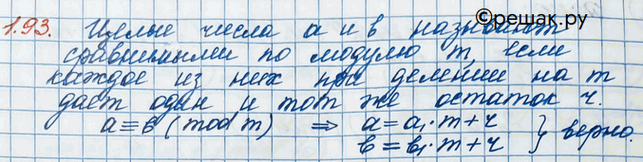 ©решак.ру
1.93. Целые числа a и b называют
сравнимыми по модулю m, если
каждое из них при делении на m
дает один и тот же остаток r.
a ≡ b (mod m) ⇒ a = a₁·m + r
b = b₁·m + r } верно.